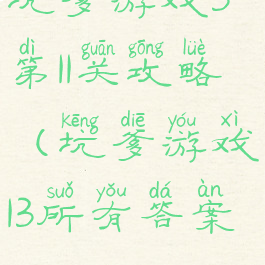 坑爹游戏3
dì guān gōng lüè
第11关攻略
kēng diē yóu xì
(坑爹游戏
suǒ yǒu dá àn
13所有答案